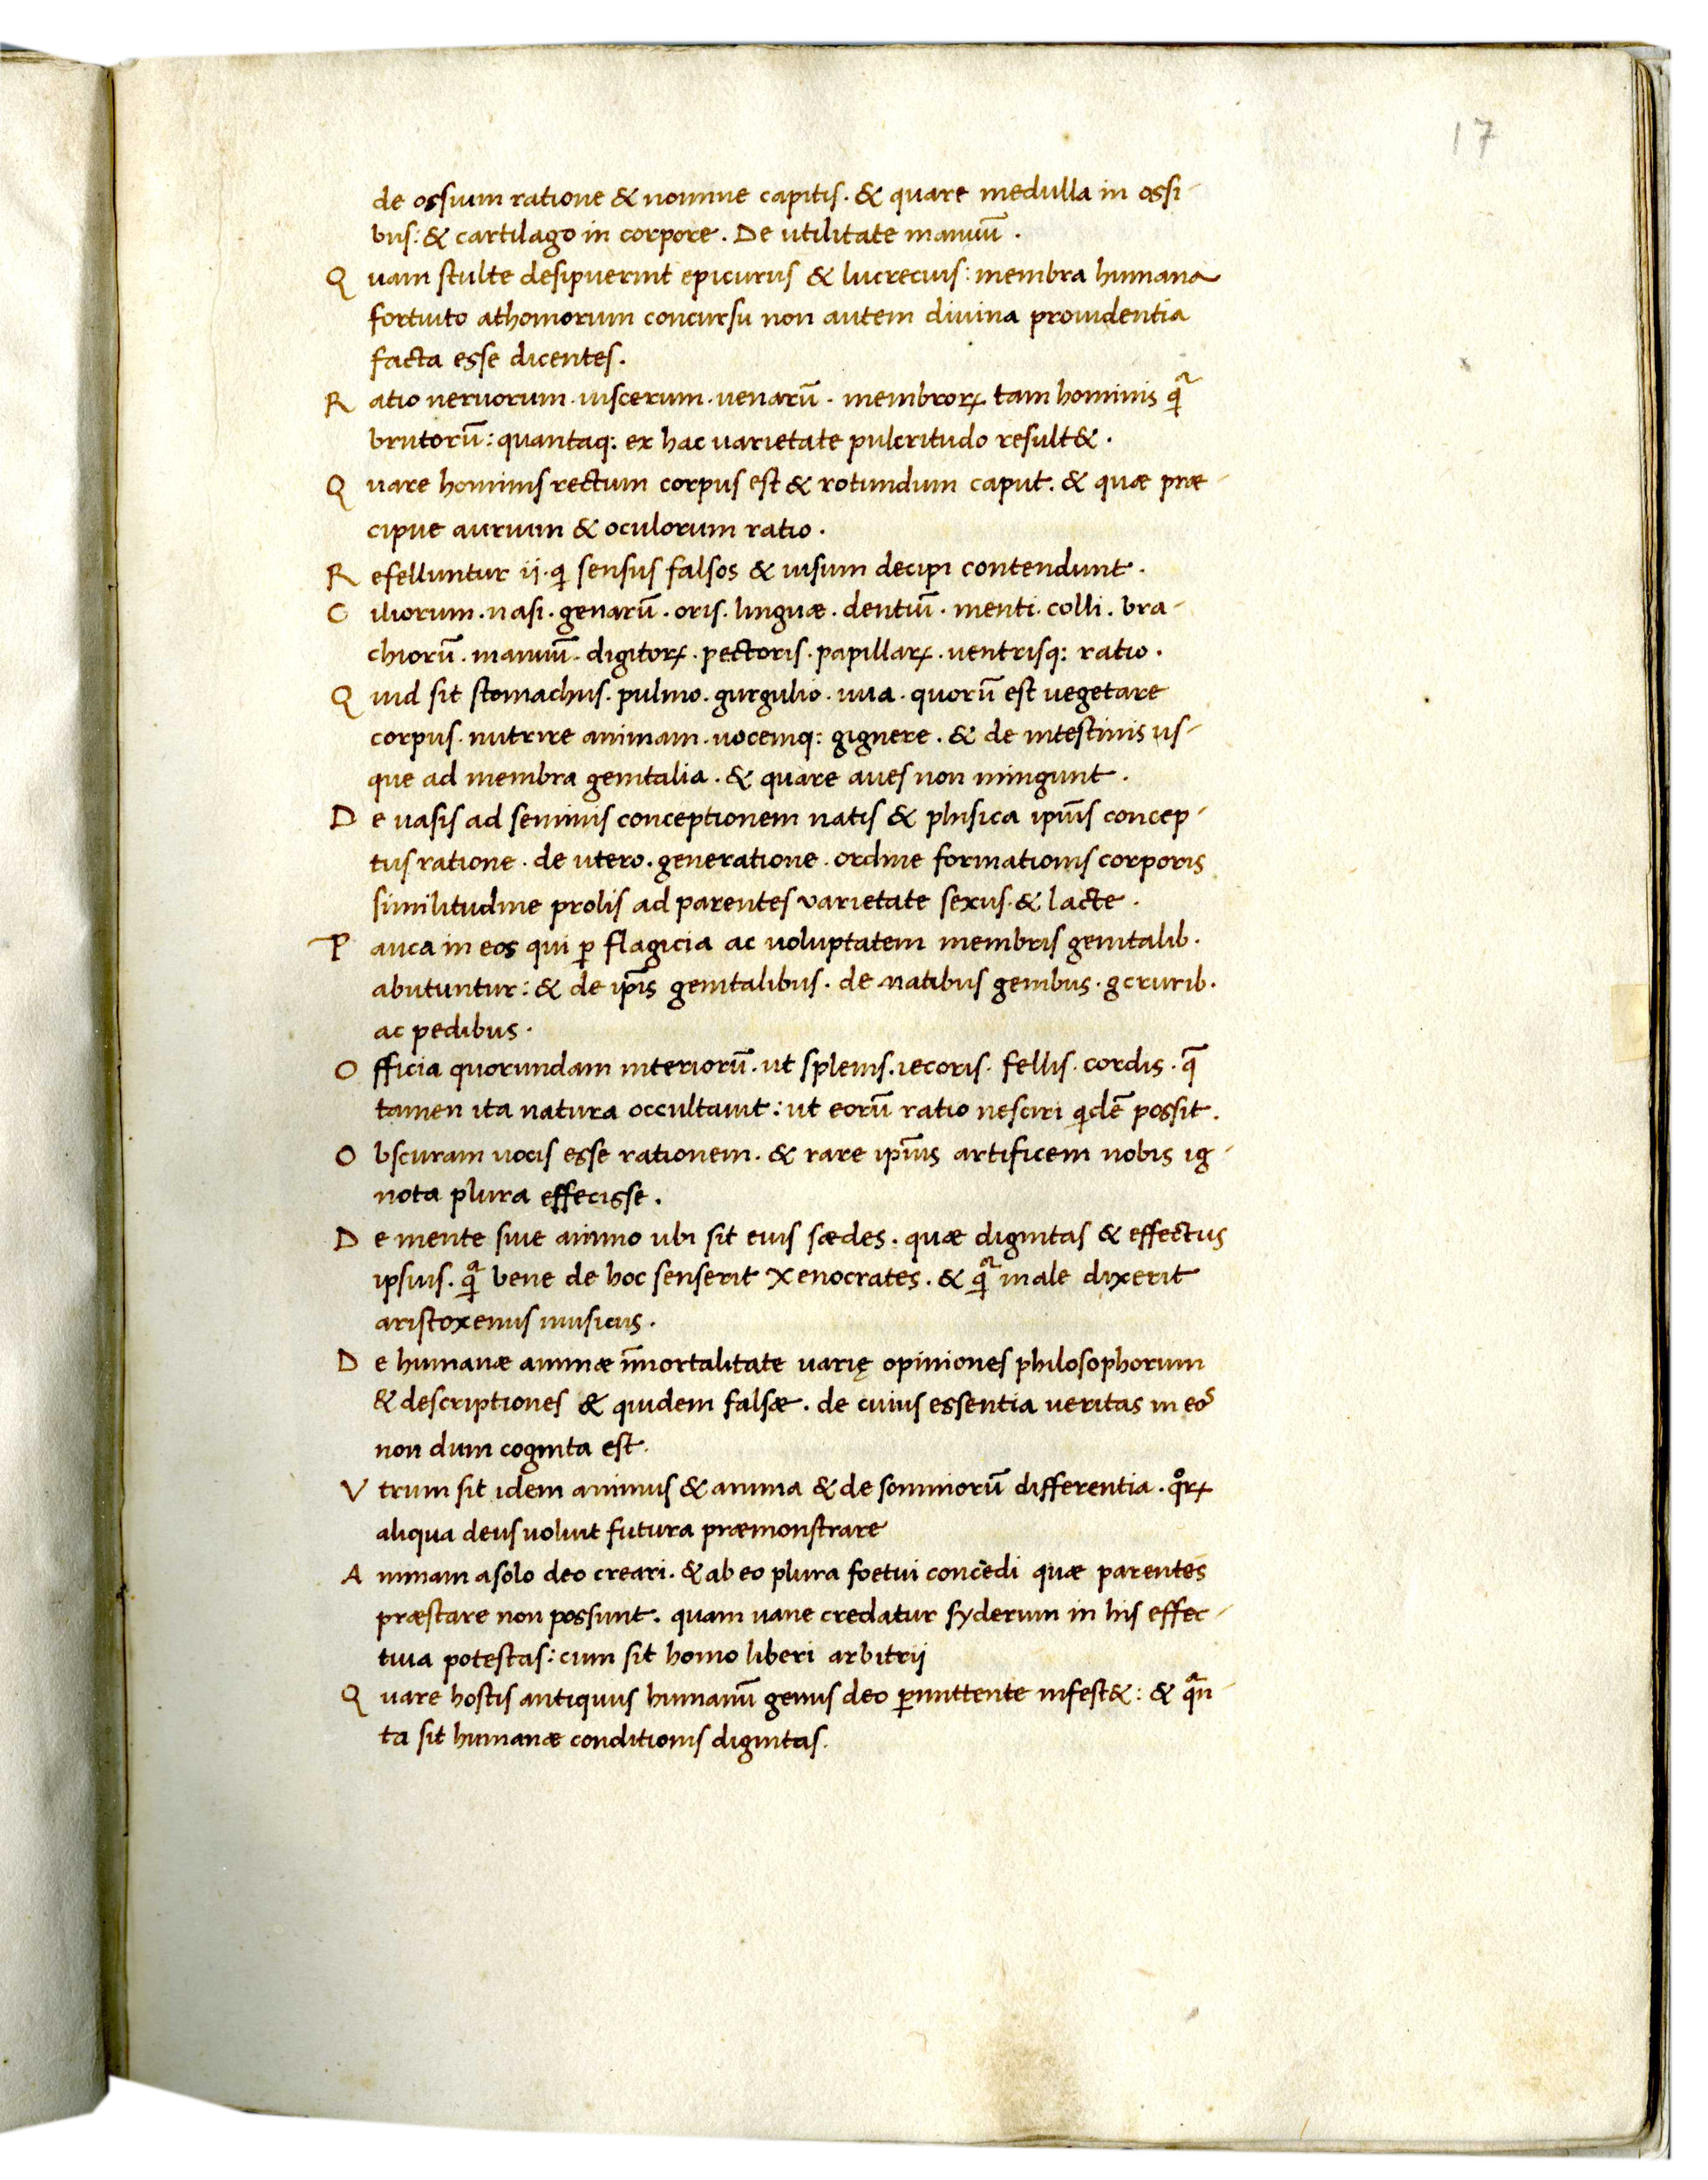 17
de ossium ratione & nomine capitis. & quare medulla in ossi-
bus: & cartilago in corpore. De utilitate manuū.
Quam stulte desipuerint epicurus & lucrecius: membra humana
fortuito athomorum concursu non autem diuina prouidentia
facta esse dicentes.
Ratio neruorum. uiscerum. uenarū. membroꝝ tam hominis q̃
brutorū: quantaq: ex hac uarietate pulcritudo result&.
Quare hominis rectum corpus est & rotundum caput. & quæ præ-
cipue aurium & oculorum ratio.
Refelluntur ij. qi sensus falsos & uisum decipi contendunt.
Ciliorum. nasi. genarū. oris. linguæ. dentiū. menti. colli. bra-
chiorū. manuū. digitoꝝ. pectoris. papillaꝝ. uentrisq: ratio.
Quid sit stomachus. pulmo. gurgulio. uua. quorū est uegetare
corpus. nutrire animam. uocemq: gignere. & de intestinis us-
que ad membra genitalia. & quare aues non mingunt.
De uasis ad seminis conceptionem natis & phisica ipīus concep-
tus ratione. de utero. generatione. ordine formationis corporis
similitudine prolis ad parentes varietate sexus. & lacte.
Pauca in eos qui ꝑ flagicia ac uoluptatem membris genitalib.
abutuntur: & de ip̄is genitalibus. de natibus genibus. gcrurib.
ac pedibus.
Officia quorundam interiorū. ut splenis. iecoris. fellis. cordis. q̄
tamen ita natura occultauit: ut eorū ratio nesciri qidē possit.
Obscuram uocis esse rationem. & rare ipīus artificem nobis ig-
nota plura effecisse.
De mente siue animo ubi sit eius sædes. quæ dignitas & effectus
ipsius. q̃ bene de hoc senserit Xenocrates. & q̃ male dixerit
aristoxenus musicus.
De humanæ animæ īmortalitate varię opiniones philosophorum
& descriptiones & quidem falsæ. de cuius essentia ueritas in eoˢ
non dum cognita est.
Vtrum sit idem animus & anima & de somniorū differentia. qͦꝝ
aliqua deus uoluit futura præmonstrare
Animam a solo deo creari. & ab eo plura foetui concedi quæ parentes
præstare non possunt. quam uane credatur syderum in his effec-
tiua potestas: cum sit homo liberi arbitrij
Quare hostis antiquus humanū genus deo ꝑmittente infest&: & q̃n-
ta sit humanæ conditionis dignitas.